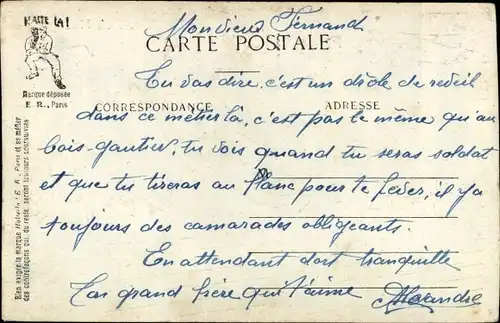 HALTE LA!
Marque déposée
E. R., Paris
CARTE POSTALE
CORRESPONDANCE
ADRESSE
Bien exiger la marque Halte-là ! E. R. Paris et se méfier
des contrefaçons qui, du reste, seront toujours poursuivies
Mon vieux Fernand
Tu vas dire, c'est un drôle de reveil
dans ce métier là, c'est pas le même qu'au
bois-gautier, tu vois quand tu seras soldat
et que tu tireras au flanc pour te lever, il y a
toujours des camarades obligeants.
En attendant dort tranquille
Ton grand frère qui t'aime Alexandre